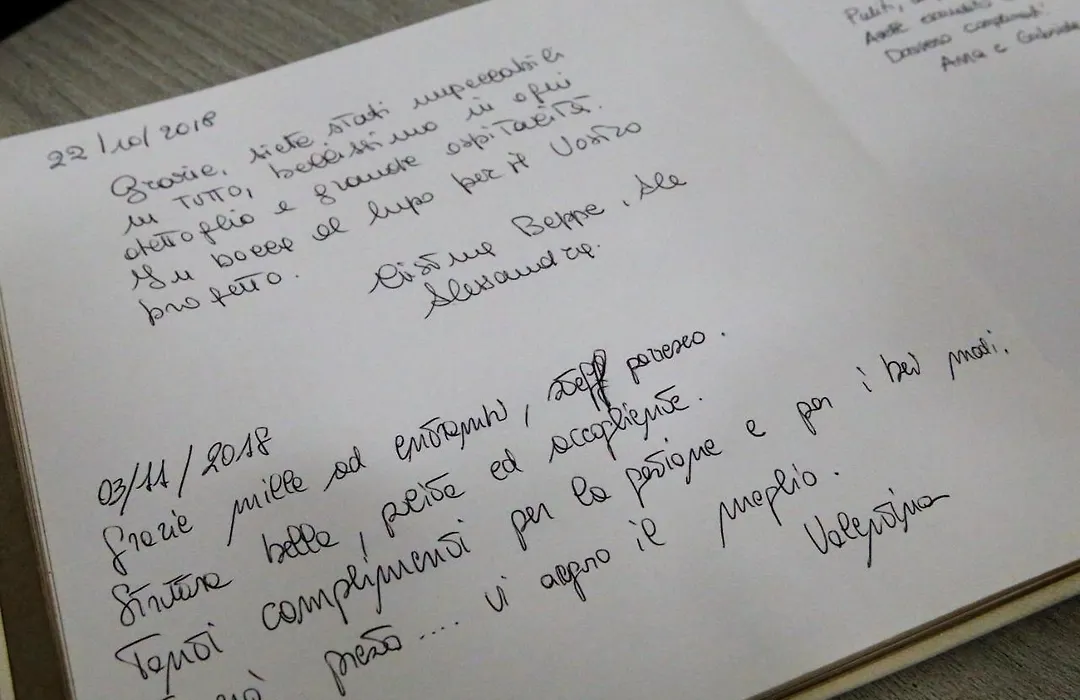 22/10/2018
Grazie, siete stati impeccabili
in TUTTO, bellissimo in ogni
dettaglio e grande ospitalità.
In bocca al lupo per il Vostro
progetto.
Cristina Beppe, Ale
Alessandra.
03/11/2018
Grazie mille ad entrambi, staff pazzesco.
Struttura bella, pulita ed accogliente.
Tanti complimenti per la pazione e per i bei modi.
presto.... vi auguro il meglio.
Valentina
Puliti,
Davvero complimenti
Anna e Gabriele